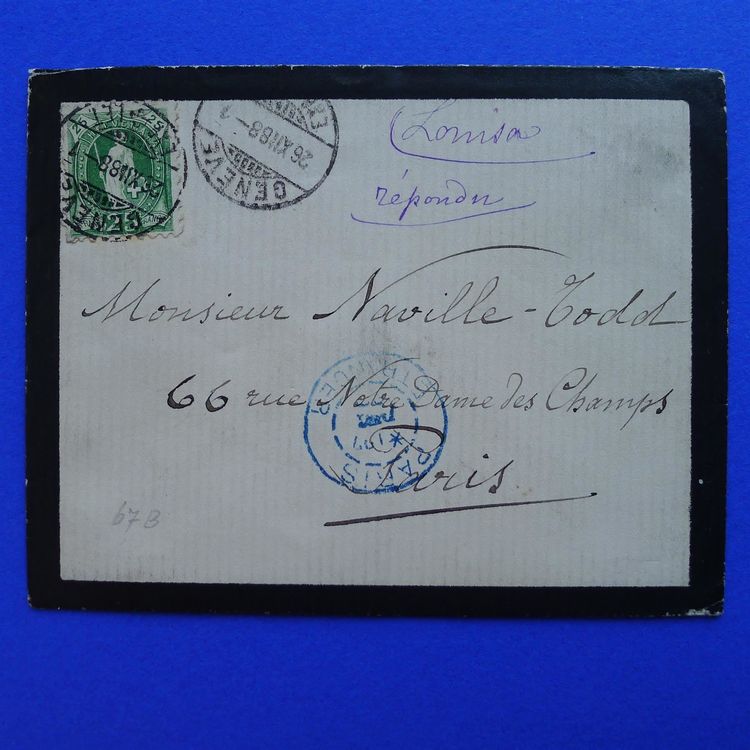 GENÈVE
26.XII.88-1
Louisa
répondu
Monsieur Naville-Todd
66 rue Notre Dame des Champs
Paris
PARIS
67B